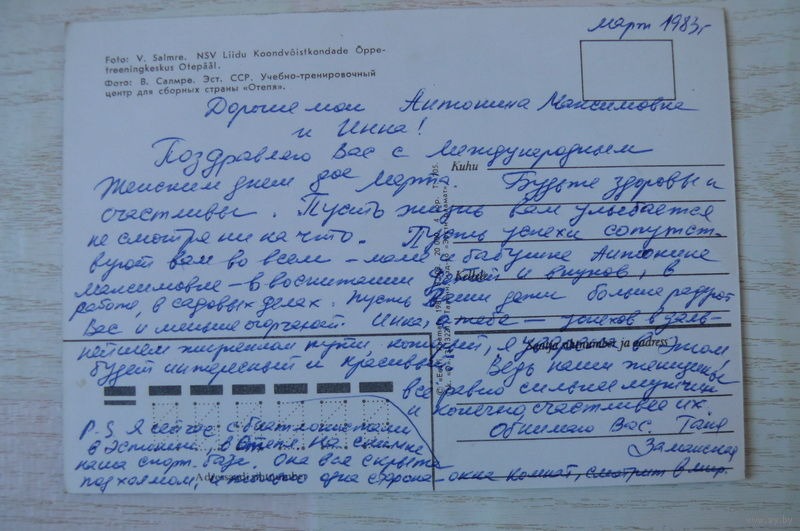 март 1983г
Foto: V. Salmre. NSV Liidu Koondvõistkondade Õppe-
treeningkeskus Otepääl.
Фото: В. Салмре. Эст. ССР. Учебно-тренировочный
центр для сборных страны «Отепя».
Дорогие мои Антонина Максимовна
и Инна!
Поздравляю Вас с Международным
Женским днем 8ое Марта. Будьте здоровы и
счастливы. Пусть жизнь вам улыбается
не смотря ни на что. Пусть успехи сопутст-
вуют вам во всем - маме и бабушке Антонине
Максимовне - в воспитании детей и внуков, в
работе, в садовых делах. Пусть Ваши дети больше радуют
Вас и меньше огорчают. Инна, а тебе - успехов в даль-
нейшем жизненном пути, который, я в этом
будет интересный и красивый. Ведь наши женщины
все равно сильнее мужчин
и конечно, счастливее их.
Обнимаю Вас. Таня
Заманская
P.S. Я сейчас с биатлонистами
в Эстонии, в Отепя. На снимке
наша спорт. база. Она вся скрыта
под холмом, и только одна сторона - окна комнат, смотрит в мир.
Kuhu
Kellele
Sihtnumber ja aadress